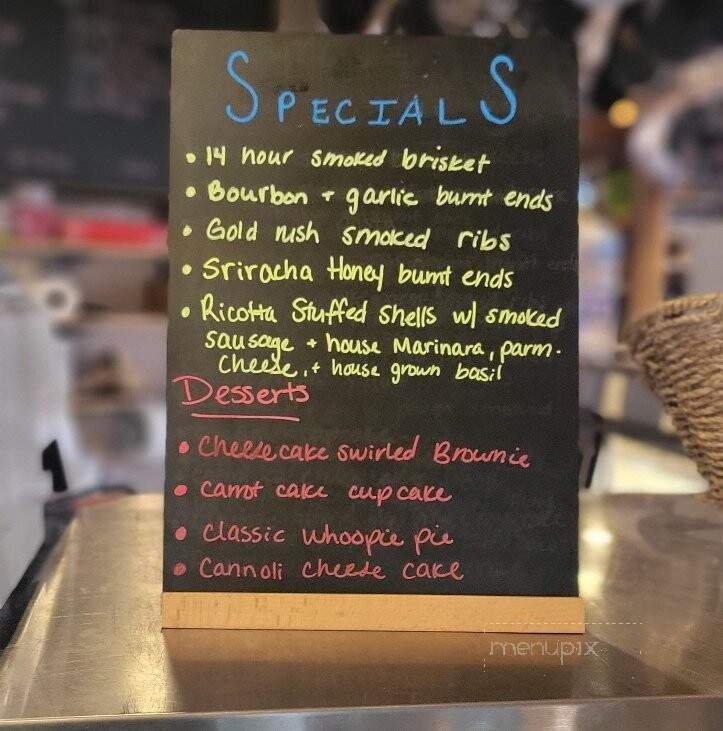 SPECIALS
• 14 hour smoked brisket
• Bourbon + garlic burnt ends
• Gold rush smoked ribs
• Sriracha Honey burnt ends
• Ricotta Stuffed Shells w/ smoked
sausage + house Marinara, parm.
cheese, + house grown basil
Desserts
• Cheesecake swirled Brownie
• carrot cake cupcake
• classic whoopie pie
• Cannoli cheese cake
menupix